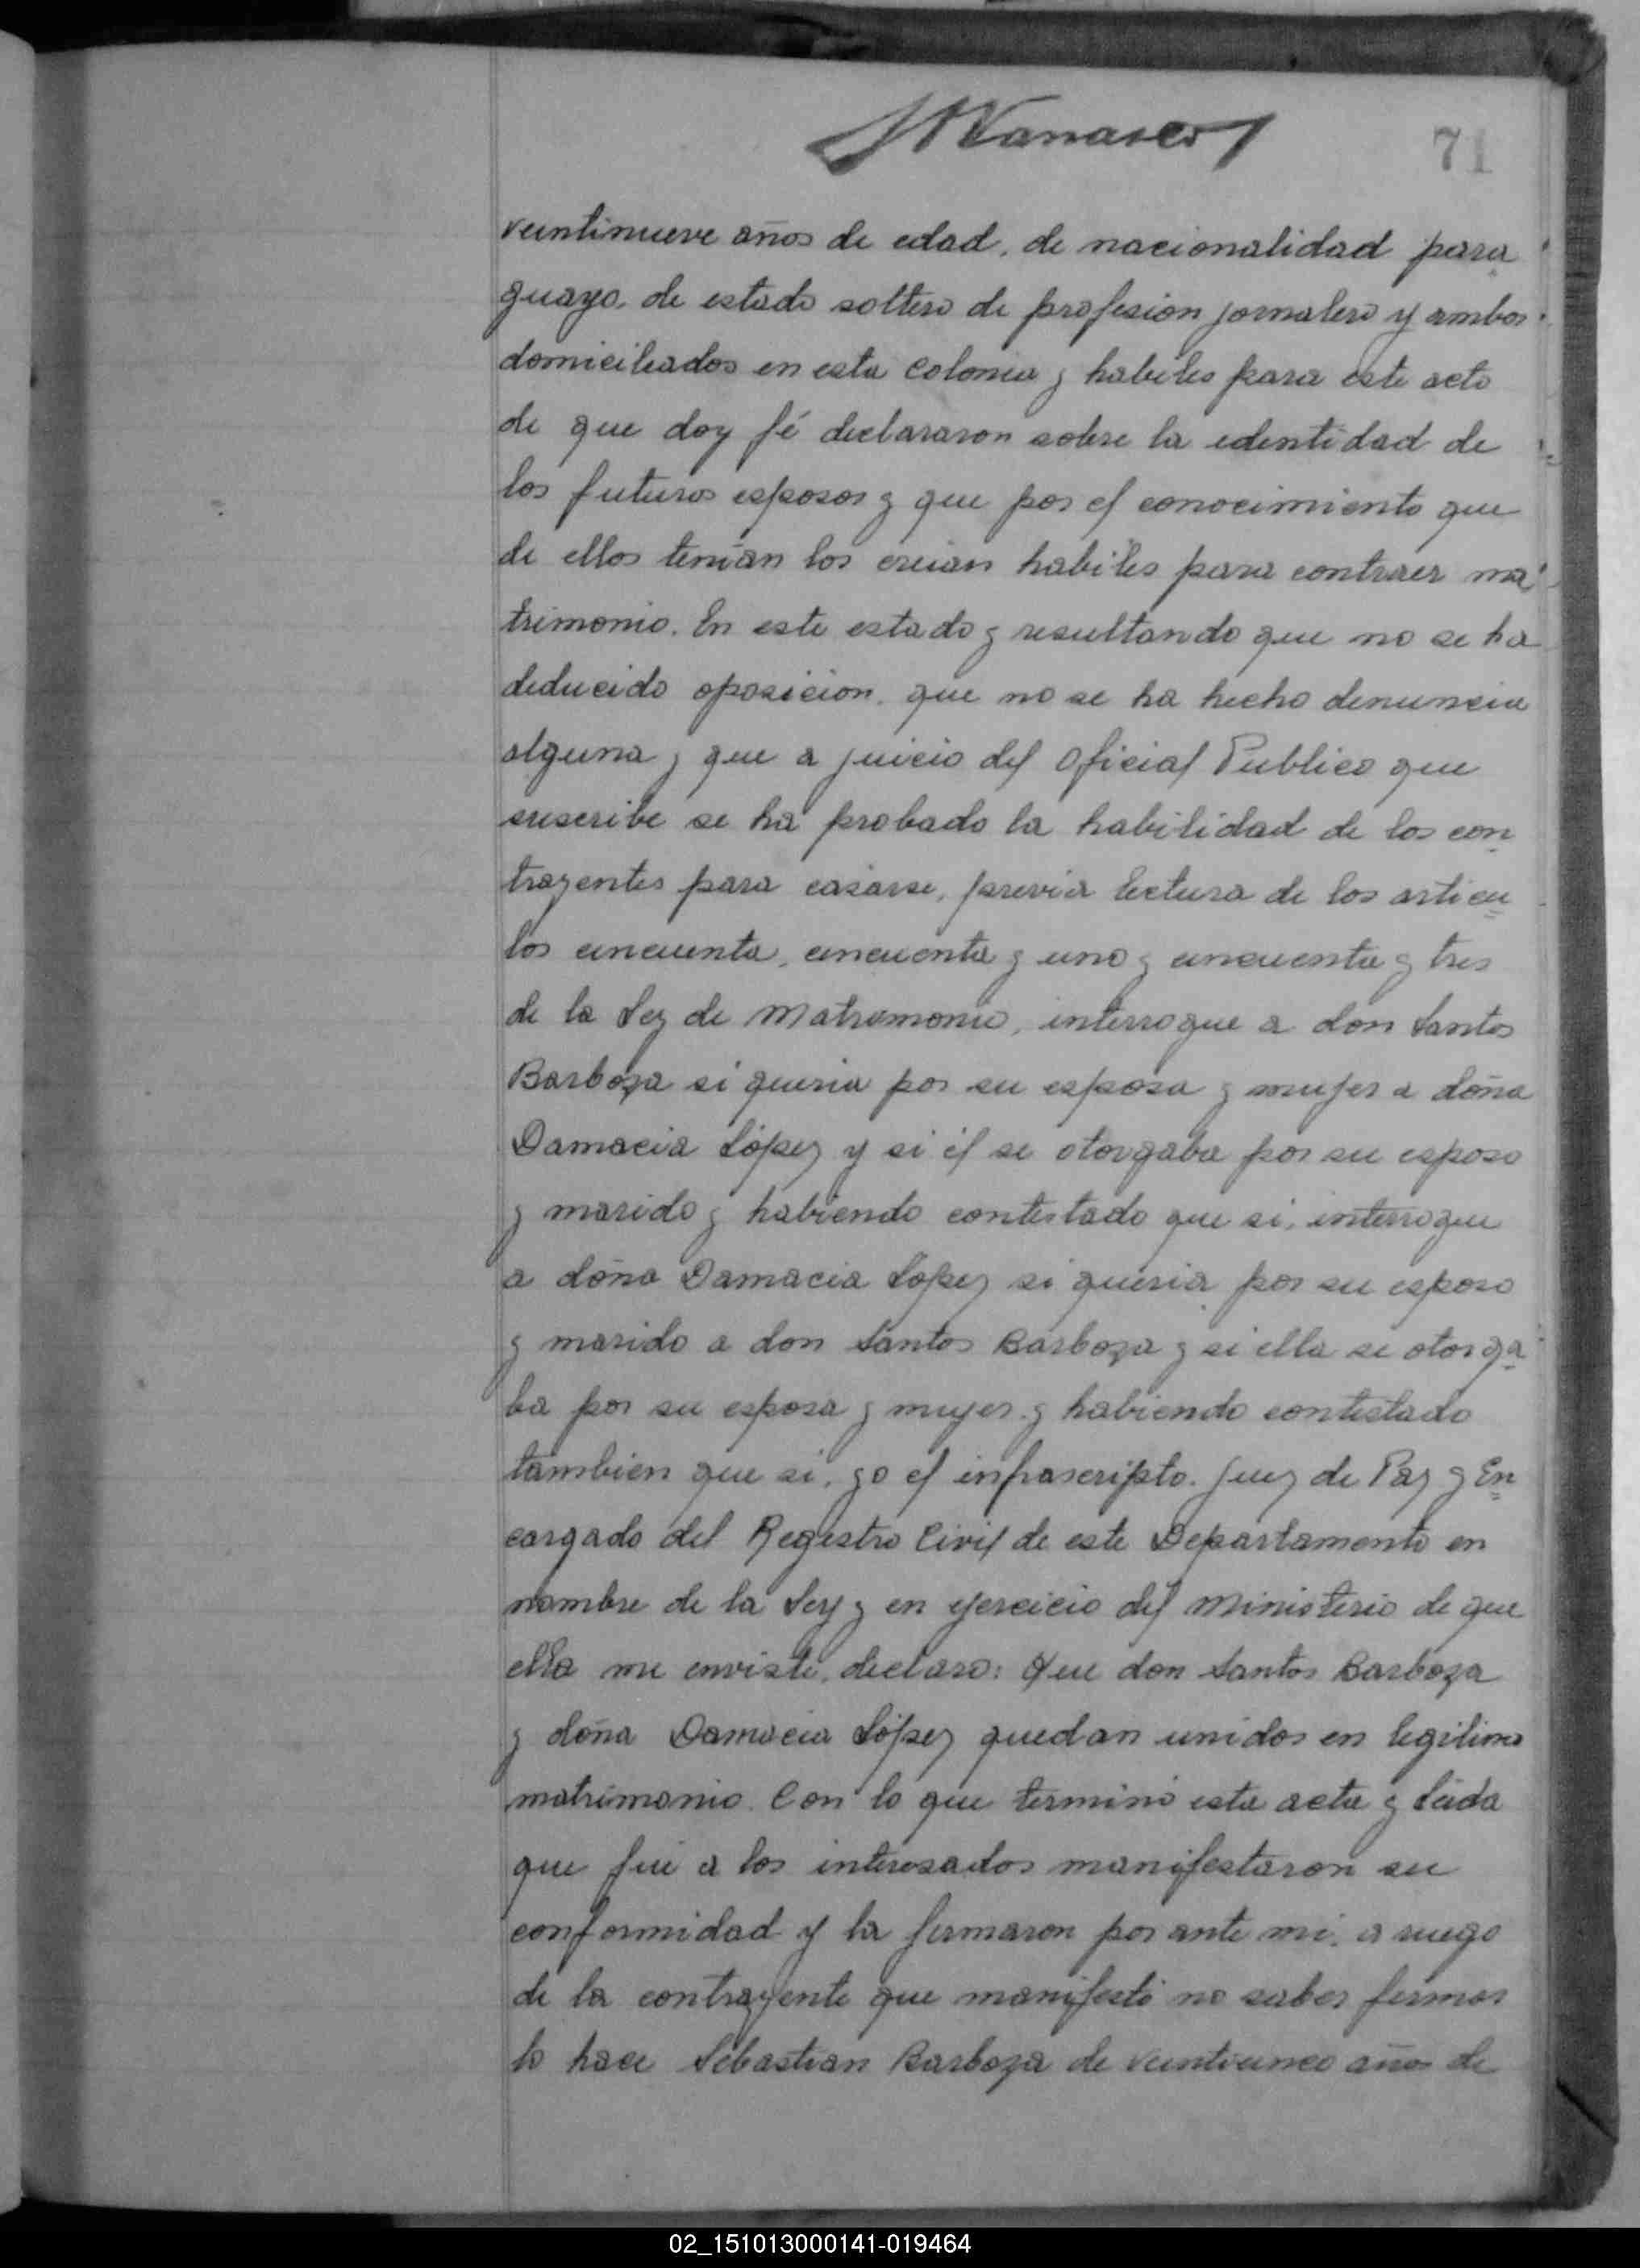 71
veintinueve años de edad, de nacionalidad para
guayo, de estado soltero de profesion jornalero y ambos
domiciliados en esta Colonia y habiles para este acto
de que doy fé declararon sobre la edentidad de
los futuros esposos y que por el conocimiento que
de ellos tenian los creian habiles para contraer ma
trimonio. En este estado y resultando que no se ha
deducido oposicion, que no se ha hecho denuncia
alguna y que a juicio del Oficial Publico que
suscribe se ha probado la habilidad de los con
trayentes para casarse, previa lectura de los articu
los cincuenta, cincuenta y uno y cincuenta y tres
de la Ley de Matrimonio, interroque a don Santos
Barboza si queria por su esposa y mujer a doña
Damacia López y si él se otorgaba por su esposo
y marido y habiendo contestado que si, interroque
a doña Damacia López si queria por su esposo
y marido a don Santos Barboza y si ella se otorga
ba por su esposa y mujer y habiendo contestado
tambien que si, yo el infrascripto, Juez de Paz y En
cargado del Registro Civil de este Departamento en
nombre de la Ley y en ejercicio del Ministerio de que
ella me enviste, declaro: Que don Santos Barboza
y doña Damacia López quedan unidos en legitimo
matrimonio. Con lo que terminó esta acta y leida
que fué a los interesados manifestaron su
conformidad y la firmaron por ante mi, a ruego
de la contrayente que manifestó no saber firmar
lo hace Sebastian Barboza de veinticinco años de
02_151013000141-019464